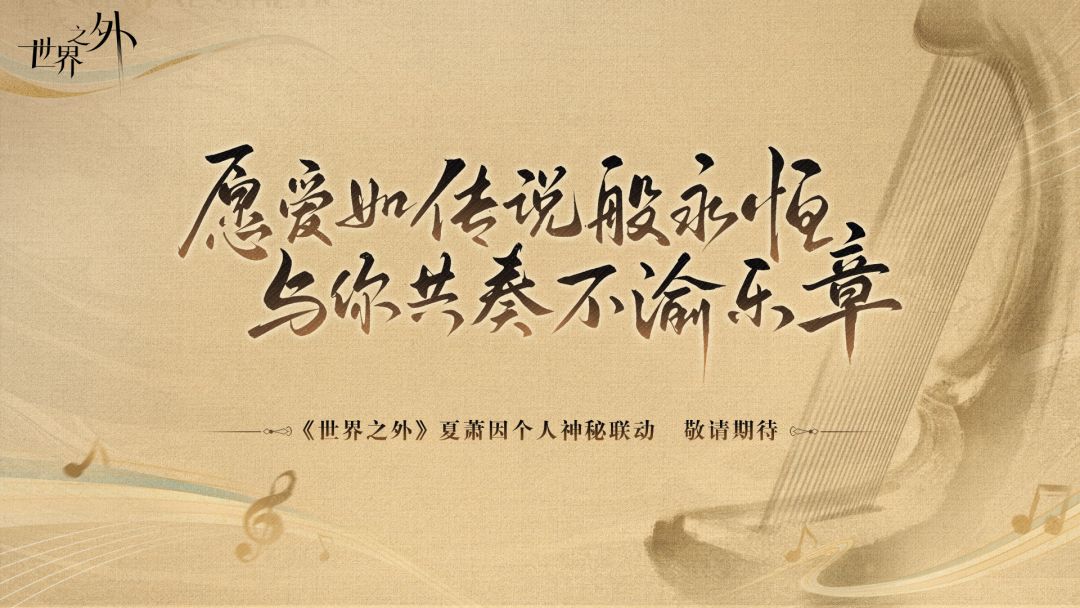 世界之外
愿爱如传说般永恒
与你共奏不渝乐章
《世界之外》夏萧因个人神秘联动 敬请期待